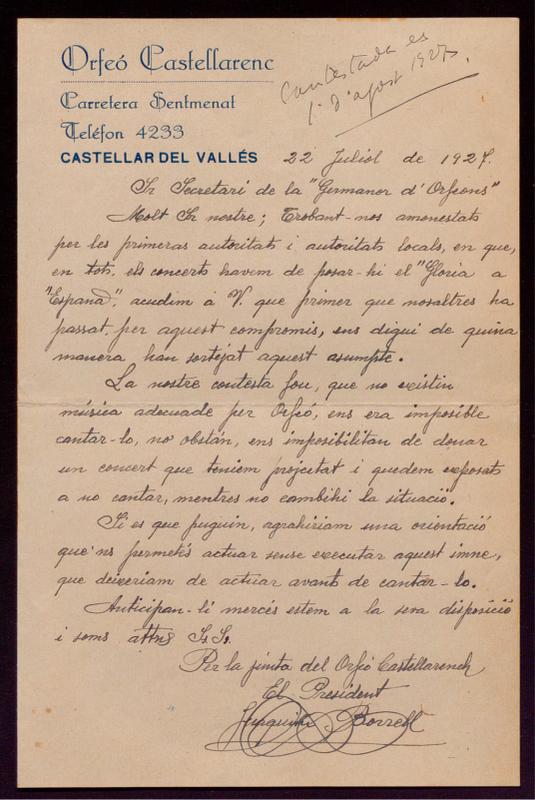 Orfeó Castellarenc
Carretera Sentmenat
Teléfon 4233
CASTELLAR DEL VALLÉS
Contestada es
1 d'agost 1927.
22 Juliol de 1927.
Sr Secretari de la "Germanor d'Orfeons"
Molt Sr nostre; Trobant-nos amonestats
per les primeras autoritats i autoritats locals, en que,
en tots els concerts havem de posar-hi el "Gloria a
"España", acudim á V. que primer que nosaltres ha
passat per aquest compromis, ens digui de quina
manera han sortejat aquest asumpte.
La nostre contesta fou, que no existin
música adecuade per Orfeó, ens era imposible
cantar-lo, no obstan, ens imposibilitan de donar
un concert que teniem projectat i quedem exposats
a no cantar, mentres no cambihi la situació.
Si es que puguin, agrahiriam una orientació
que'ns permetés actuar sense executar aquest imne,
que deixeriam de actuar avans de cantar-lo.
Anticipan-li mercés estem a la seva disposició
i soms attns Ss. Ss.
Per la junta del Orfeó Castellarench
El President
Joaquim Borrell